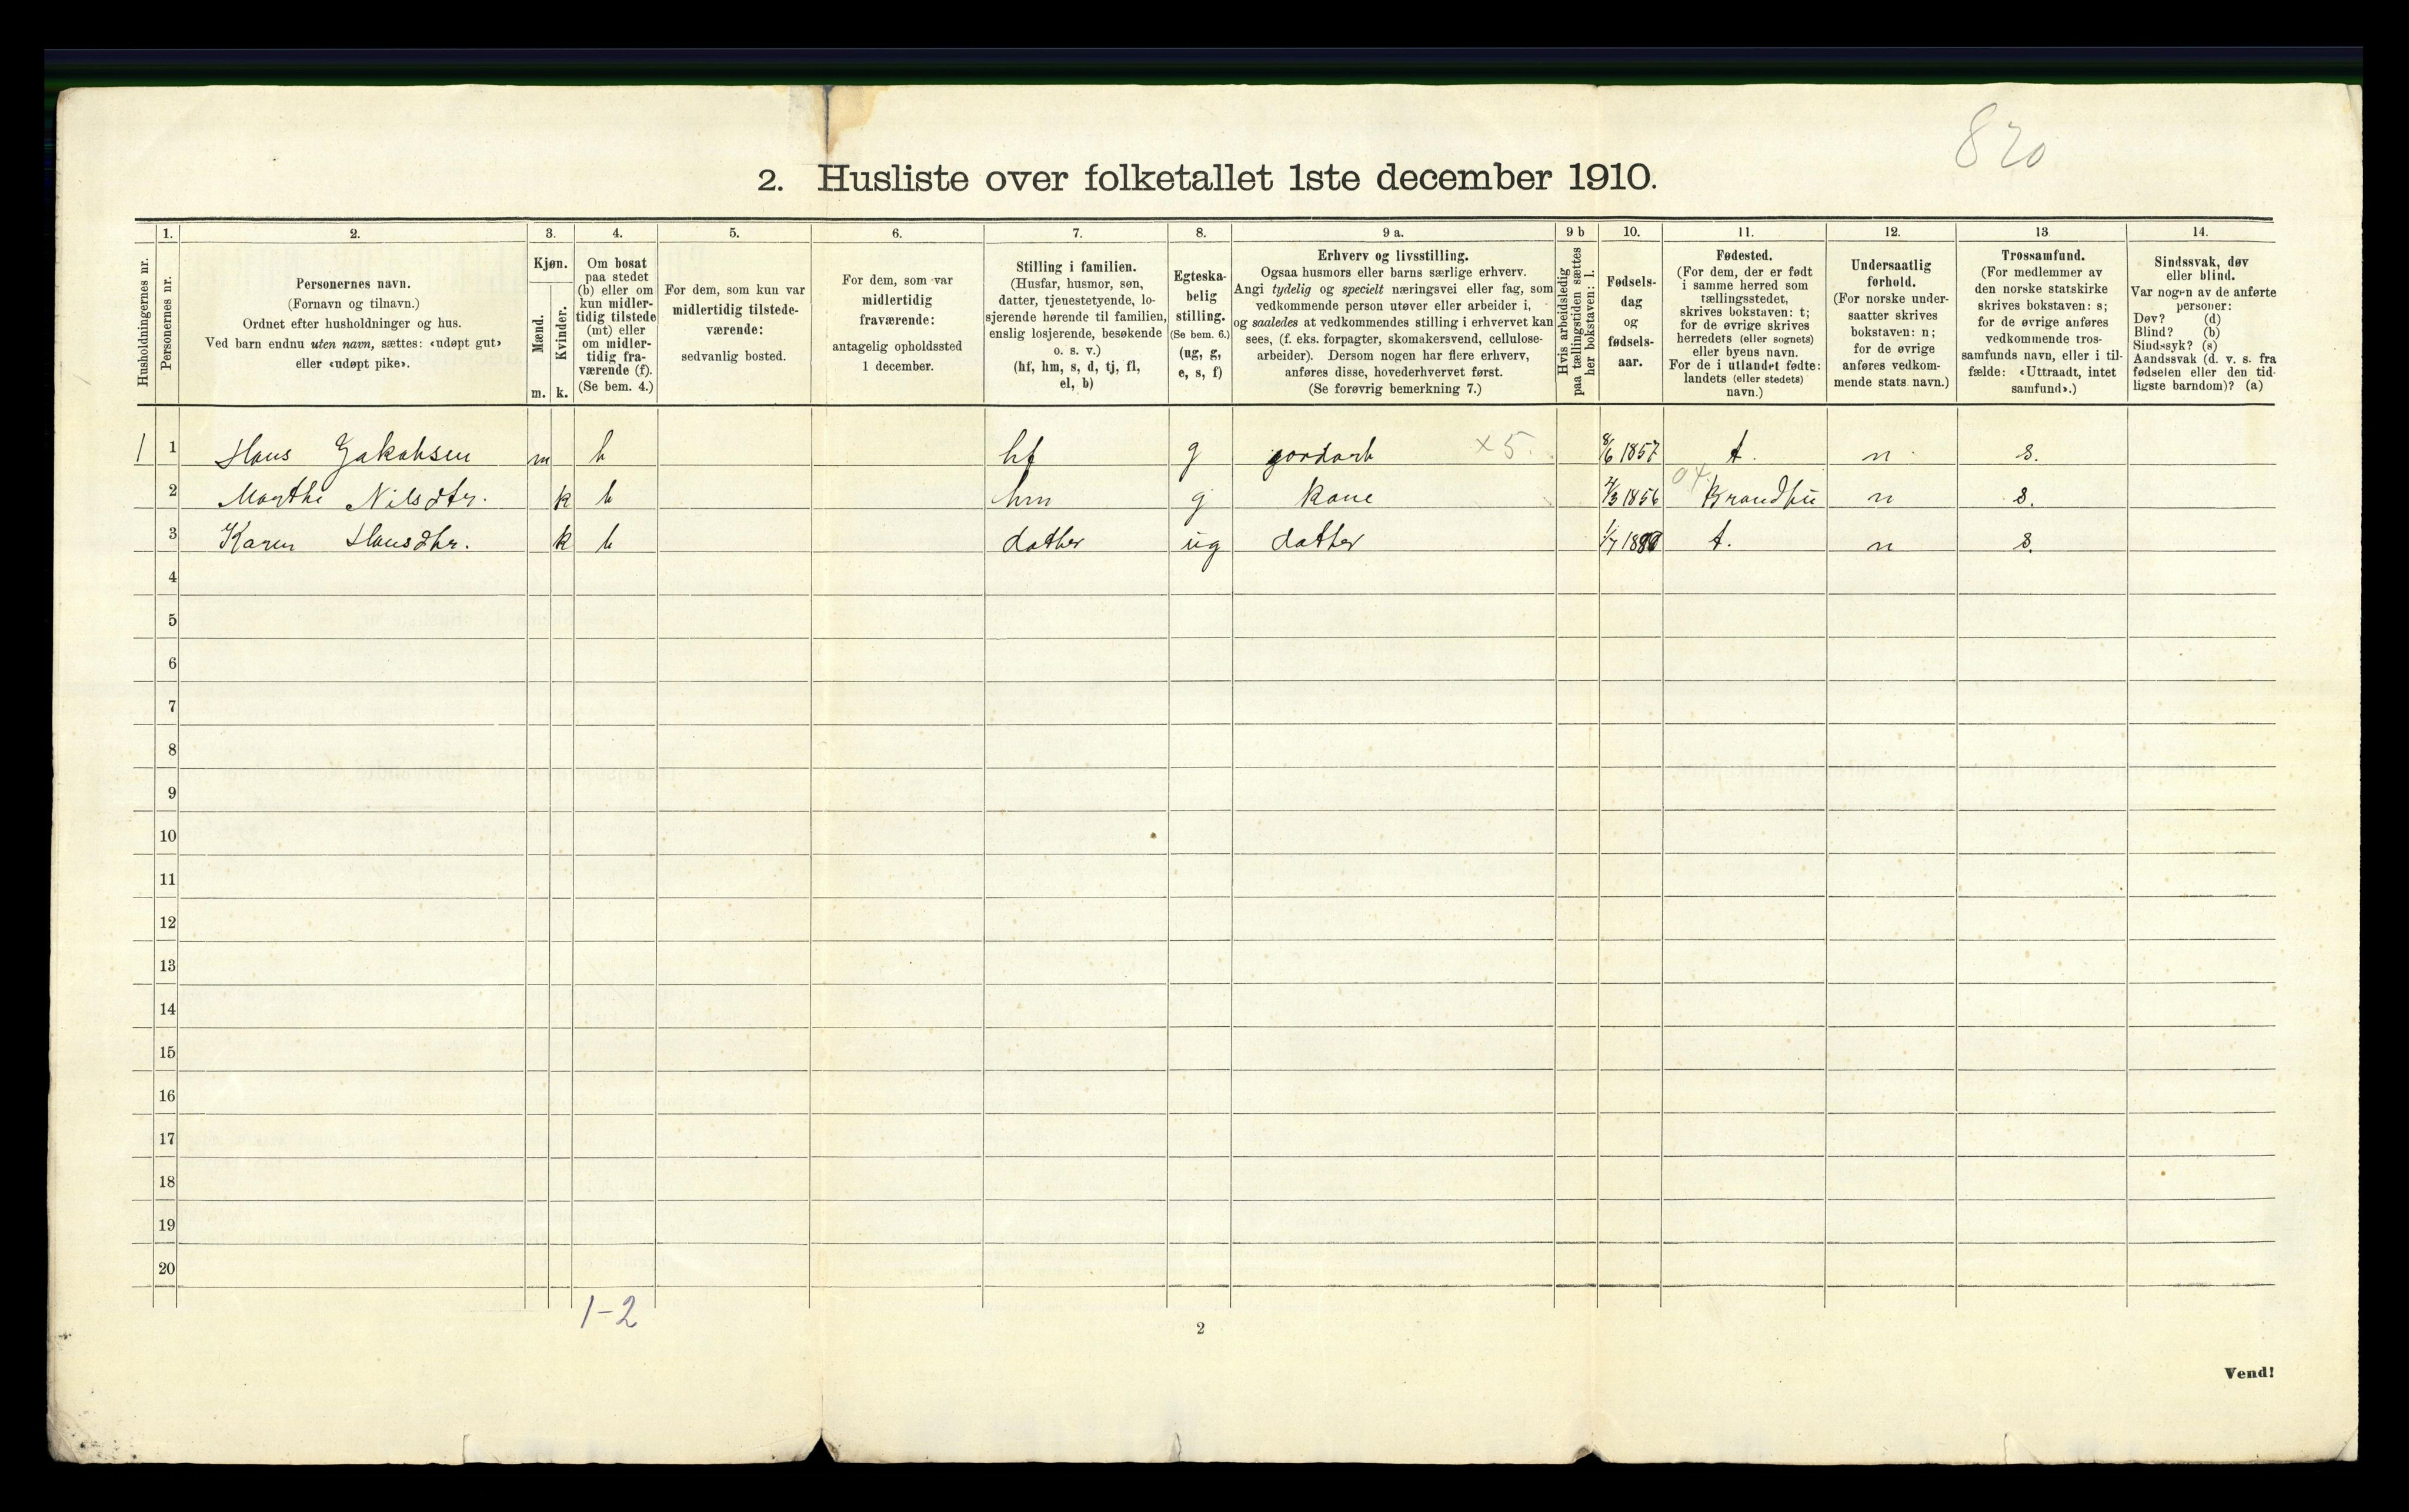 820
2. Husliste over folketallet 1ste december 1910.
Husholdningernes nr.
1.
Personernes nr.
2.
Personernes navn.
(Fornavn og tilnavn.)
Ordnet efter husholdninger og hus.
Ved barn endnu uten navn, sættes: «udøpt gut»
eller «udøpt pike».
3.
Kjøn.
Mænd.
Kvinder.
m. k.
4.
Om bosat
paa stedet
(b) eller om
kun midler-
tidig tilstede
(mt) eller
om midler-
tidig fra-
værende (f).
(Se bem. 4.)
5.
For dem, som kun var
midlertidig tilstede-
værende:
sedvanlig bosted.
6.
For dem, som var
midlertidig
fraværende:
antagelig opholdssted
1 december.
7.
Stilling i familien.
(Husfar, husmor, søn,
datter, tjenestetyende, lo-
sjerende hørende til familien,
enslig losjerende, besøkende
o. s. v.)
(hf, hm, s, d, tj, fl,
el, b)
8.
Egteska-
belig
stilling.
(Se bem. 6.)
(ug, g,
e, s, f)
9 a.
Erhverv og livsstilling.
Ogsaa husmors eller barns særlige erhverv.
Angi tydelig og specielt næringsvei eller fag, som
vedkommende person utøver eller arbeider i,
og saaledes at vedkommendes stilling i erhvervet kan
sees, (f. eks. forpagter, skomakersvend, cellulose-
arbeider). Dersom nogen har flere erhverv,
anføres disse, hovederhvervet først.
(Se forøvrig bemerkning 7.)
9 b
Hvis arbeidsledig
paa tællingstiden sættes
her bokstaven: l.
10.
Fødsels-
dag
og
fødsels-
aar.
11.
Fødested.
(For dem, der er født
i samme herred som
tællingsstedet,
skrives bokstaven: t;
for de øvrige skrives
herredets (eller sognets)
eller byens navn.
For de i utlandet fødte:
landets (eller stedets)
navn.)
12.
Undersaatlig
forhold.
(For norske under-
saatter skrives
bokstaven: n;
for de øvrige
anføres vedkom-
mende stats navn.)
13
Trossamfund.
(For medlemmer av
den norske statskirke
skrives bokstaven: s;
for de øvrige anføres
vedkommende tros-
samfunds navn, eller i til-
fælde: «Uttraadt, intet
samfund».)
14.
Sindssvak, døv
eller blind.
Var nogen av de anførte
personer:
Døv? (d)
Blind? (b)
Sindssyk? (s)
Aandssvak (d. v. s. fra
fødselen eller den tid-
ligste barndom)? (a)
1 1 Hans Jakobsen m b hf g gordarb x5. 8/6 1857 t. n s.
2 Marthe Nilsdtr. k b hm g kone /3 1856 04 Brandbu n s.
3 Karen Hansdtr. k b datter ug datter 1/7 t. n s.
4
5
6
7
8
9
10
11
12
13
14
15
16
17
18
19
20
1-2
2
Vend!